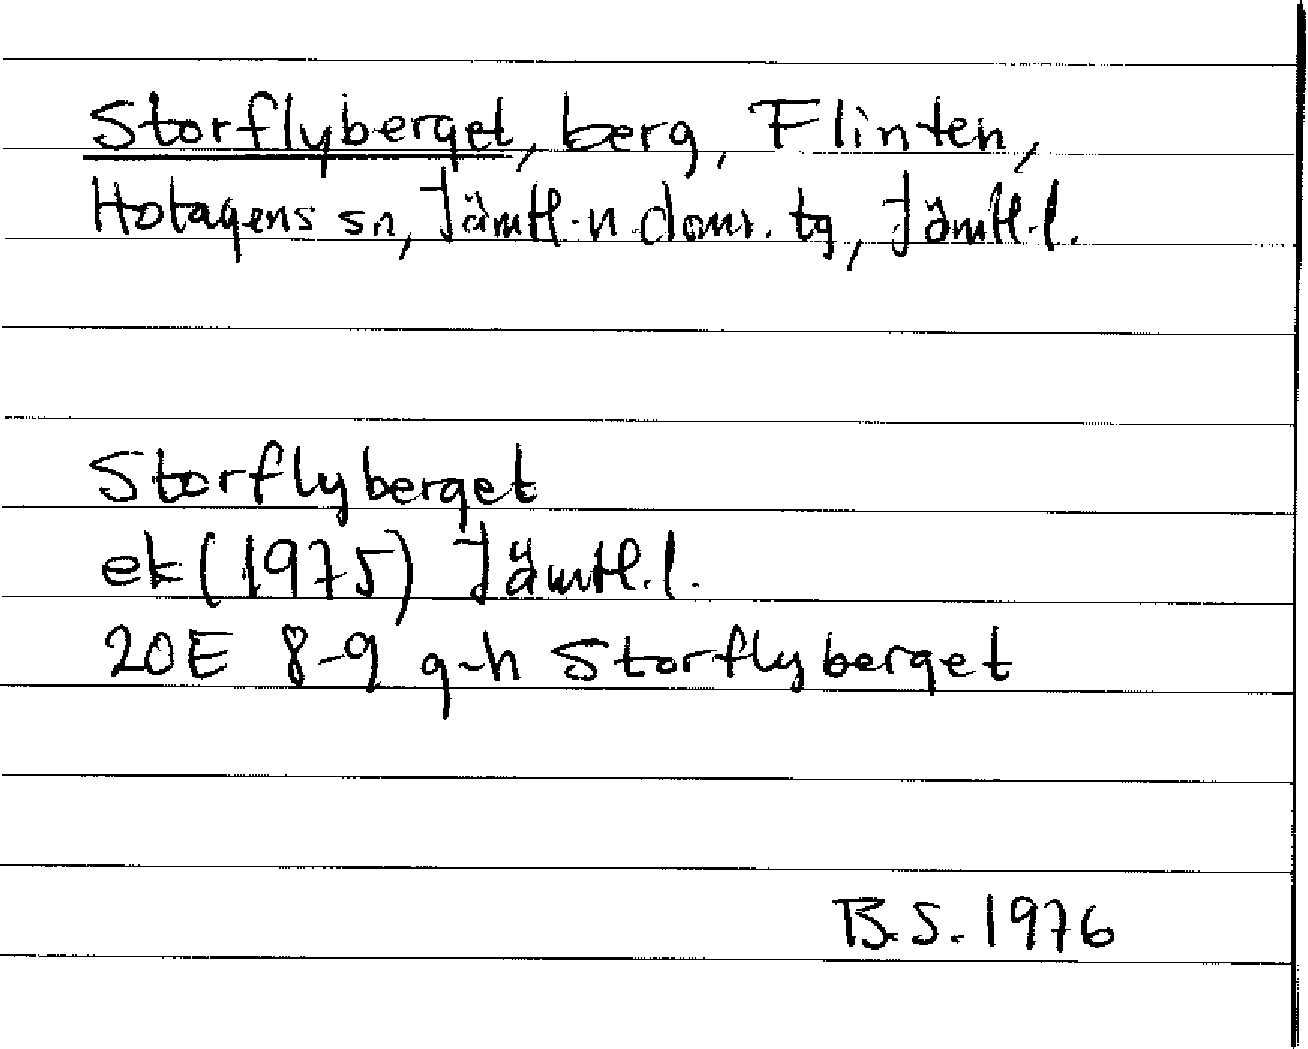 Storflyberget, berg, Flinten,
Hotagens sn, Jämtl. n. doms. tg, Jämtl. l.
Storflyberget
ek (1975) Jämtl. l.
20E 8-9 g-h Storflyberget
B.S. 1976